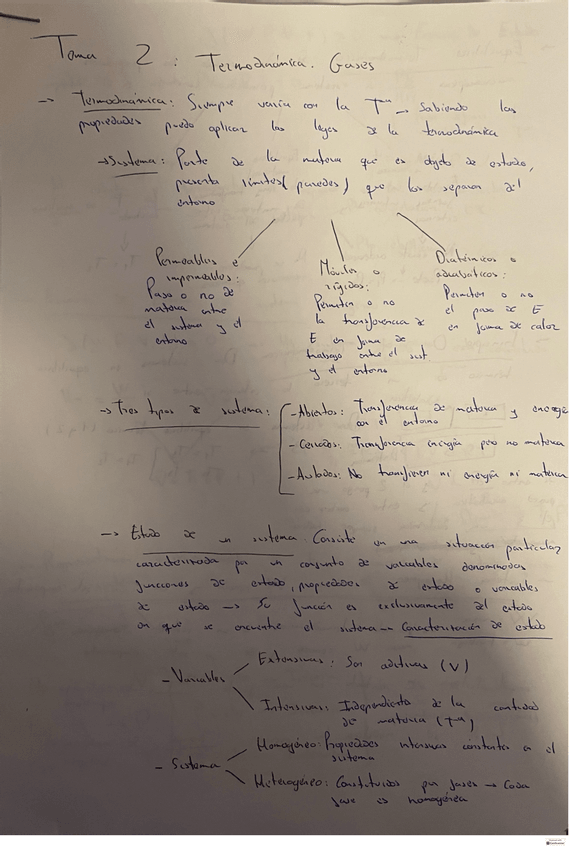 Tema 2: Termodinámica. Gases
→ Termodinámica: Siempre varía con la Tª → Sabiendo las
propiedades puedo aplicar las leyes de la termodinámica
→ Sistema: Parte de la materia que es objeto de estudio,
presenta límites (paredes) que los separan del
entorno
Permeables e
impermeables:
Paso o no de
materia entre
el sistema y el
entorno
Móviles o
rígidos:
Permiten o no
la transferencia de
E en forma de
trabajo entre el sist
y el entorno
Diatérmicos o
adiabáticos:
Permiten o no
el paso de E
en forma de calor
→ Tres tipos de sistema:
- Abiertos: Transferencia de materia y energía
con el entorno
- Cerrados: Transferencia energía pero no materia
- Aislados: No transfieren ni energía ni materia
→ Estado de un sistema. Consiste en una situación particular
caracterizada por un conjunto de variables denominadas
funciones de estado, propiedades de estado o variables
de estado → Su función es exclusivamente del estado
en que se encuentre el sistema → Caracterización de estado
- Variables
Extensivas: Son aditivas (V)
Intensivas: Independiente de la cantidad
de materia (Tª)
- Sistema
Homogéneo: Propiedades intensivas constantes en el
sistema
Heterogéneo: Constituidos por fases → Cada
fase es homogénea